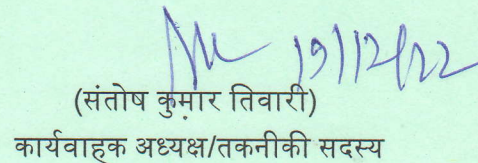 19/12/22
(संतोष कुमार तिवारी)
कार्यवाहक अध्यक्ष/तकनीकी सदस्य